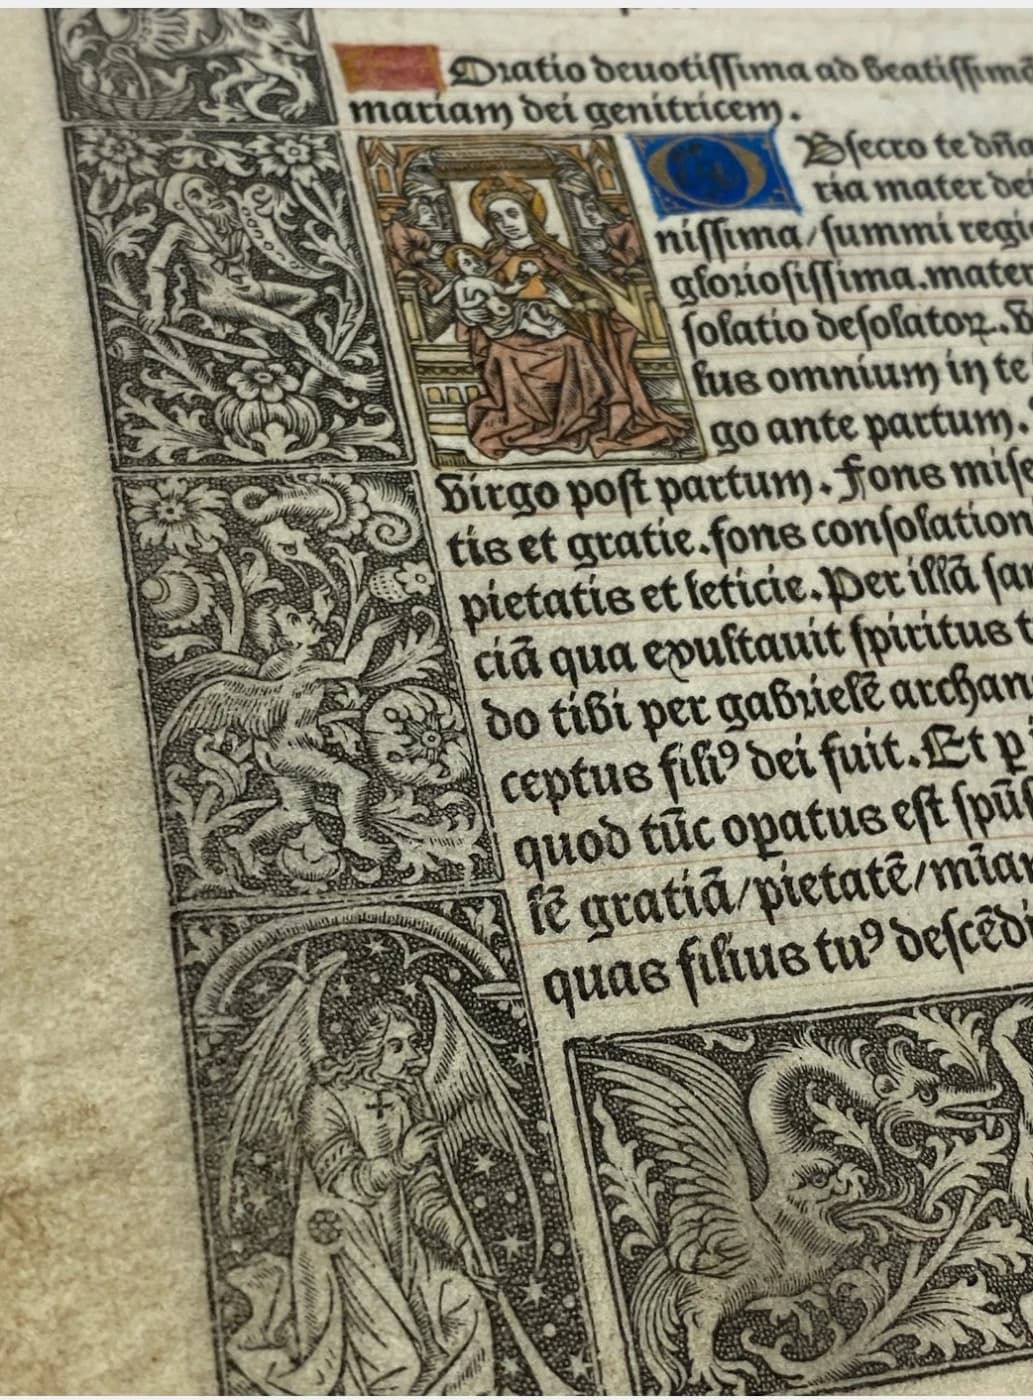 Oratio deuotissima ad beatissimā
mariam dei genitricem.
Obsecro te dn̄a
ria mater dei
nissima/summi regi
gloriosissima.mater
solatio desolatoꝝ.
lus omnium in te
go ante partum.
Virgo post partum.Fons mise
tis et gratie.fons consolation
pietatis et leticie.Per illā san
ciā qua exultauit spiritus t
do tibi per gabrielē archan
ceptus filiꝰ dei fuit.Et
quod tūc oꝑatus est spūs
lē gratiā/pietatē/
quas filius tuꝰ descēdi